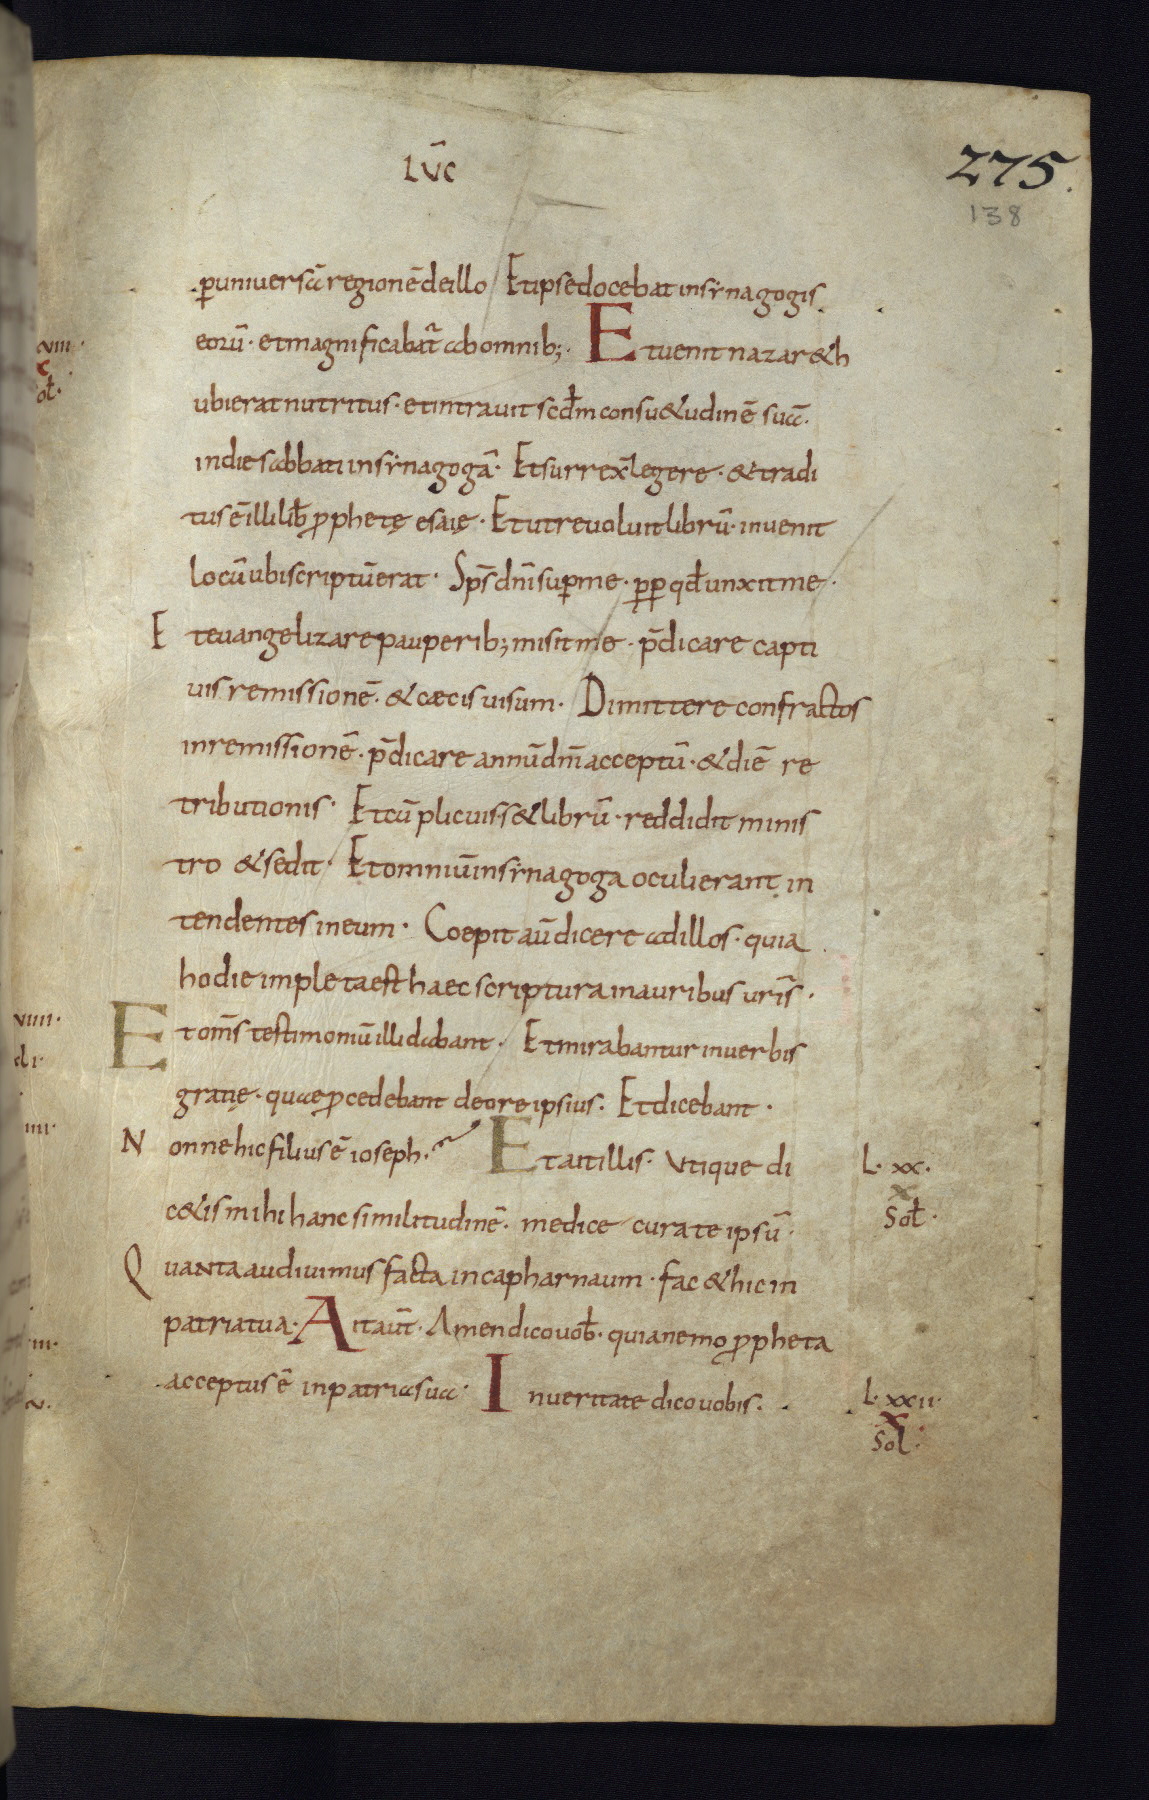 LŪC
275.
138
ꝑuniversā regionē deillo Etipsedocebat insẏnagogis
eorū· etmagnificabat᷑ abomnib;· Etuenit nazar&h
ubierat nutritus· etintrauit scd̄m consu&udinē suā·
indiesabbati insẏnagogā· Etsurrex̄ legere· &tradi
tus ē illi lib̄ ꝓphetę esaię· Etutreuoluit librū· inuenit
locū ubiscriptū erat· Sp̄s dn̄i suꝑme· ꝓꝑ qd̄ unxitme·
Eteuangelizare pauperib; misitme· p̄dicare capti
uis remissionē· &cæcis uisum· Dimittere confractos
inremissionē· p̄dicare annū dn̄i acceptū· &diē re
tributionis· Etcū plicuiss& librū· reddidit minis
tro &sedit· Etomniū insẏnagoga oculi erant in
tendentes ineum· Coepit aū dicere adillos· quia
hodie impleta est haec scriptura inauribus ur̄is·
Etom̄s testimoniū illi dabant· Etmirabantur inuerbis
gratię· quae ꝓcedebant deore ipsius· Etdicebant·
Nonne hic filius ē ioseph· Etaitillis· Utique di
c&is mihi hanc similitudinē· medice cura te ipsū·
Quanta audiuimus facta incapharnaum· fac &hic in
patria tua· Ait aūt· Amen dico uob̄· quia nemo ꝓpheta
acceptus ē inpatria sua· Inueritate dico uobis·
L· xx·
x
Sol̄·
L· xxii·
x
Sol·